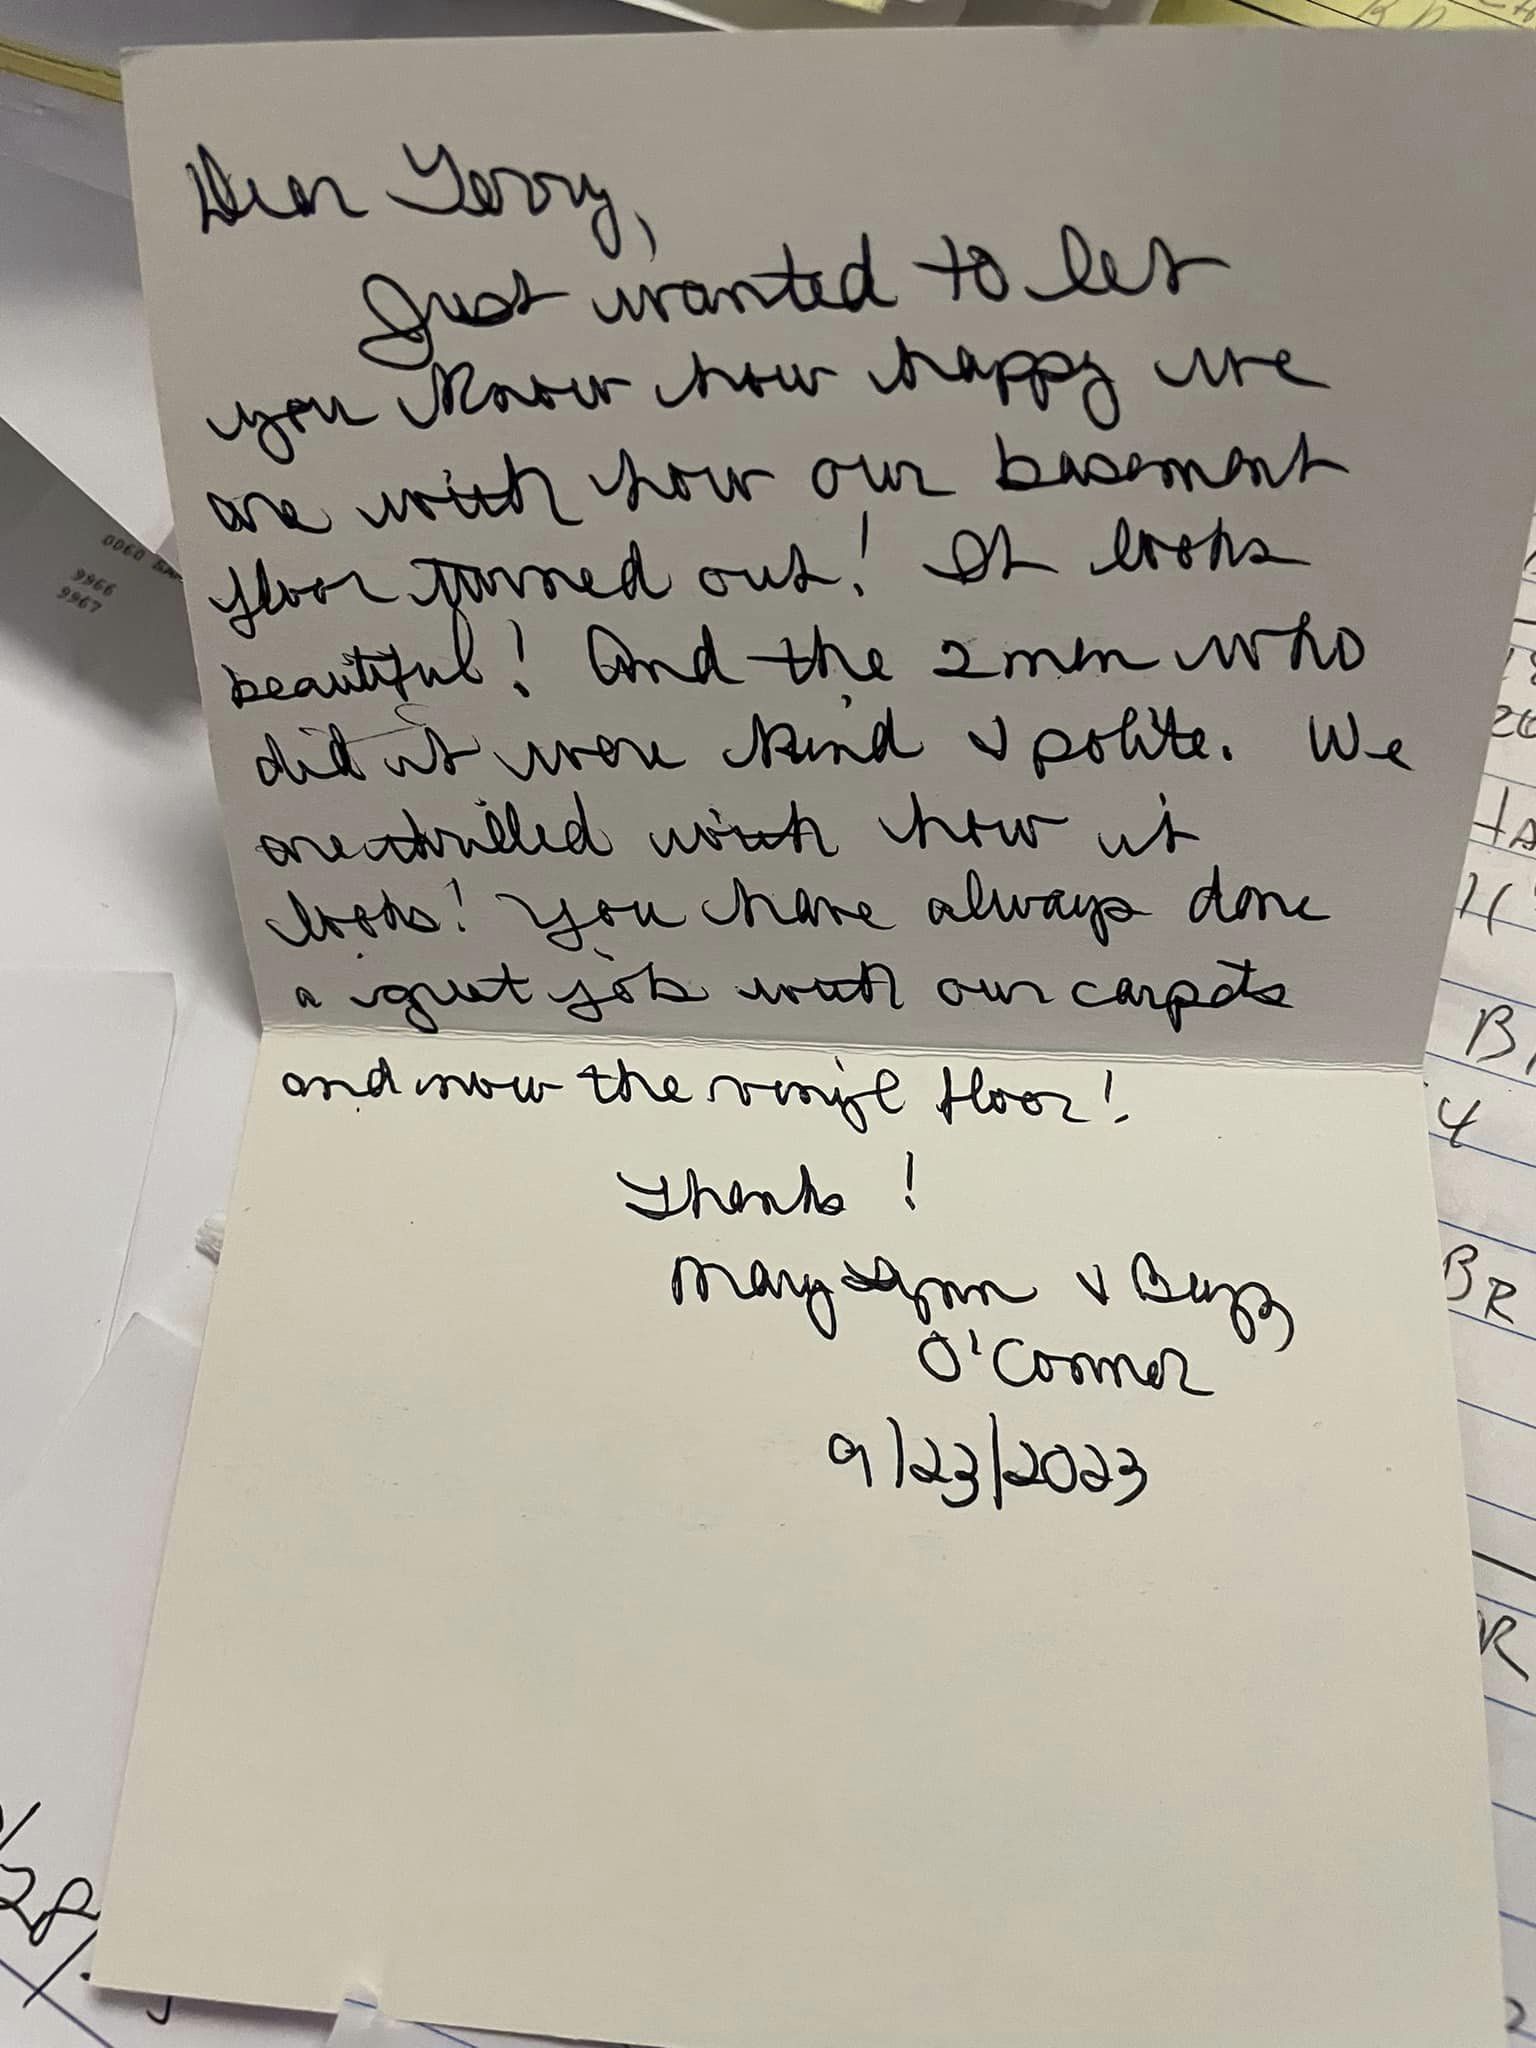 Dear Terry,
Just wanted to let
you know how happy we
are with how our basement
floor turned out! It looks
beautiful! And the 2 men who
did it were kind & polite. We
are thrilled with how it
looks! You have always done
a great job with our carpets
and now the vinyl floor!
Thanks!
Mary Lynn & Buzz
O'Connor
9/23/2023
0060
9966
9967
BR
4
BR
R
28